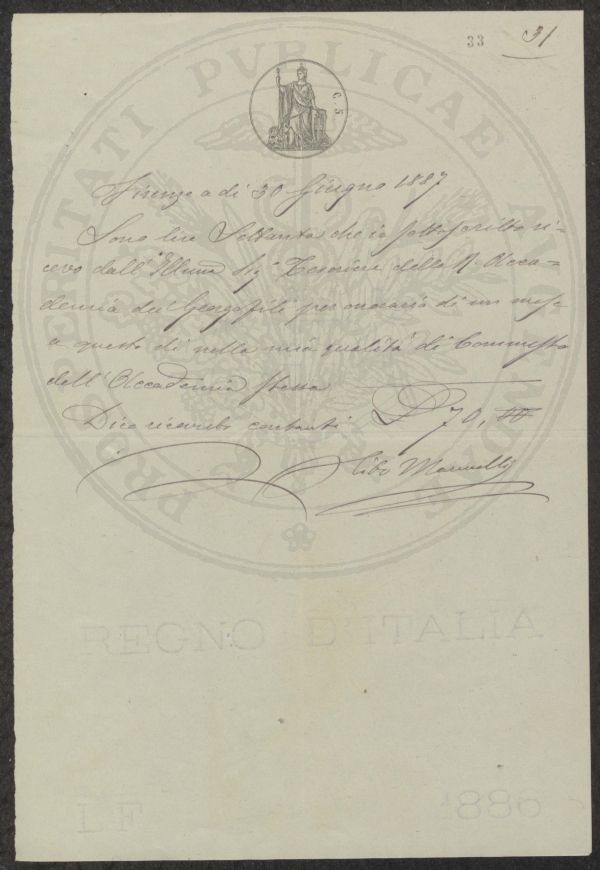 33 31
PROSPERITATI PVBLICAE AVGENDAE
C. 5
Firenze a di 30 Giugno 1887
Sono lire Settanta che io sottoscritto ri-
cevo dall' Illmo Sig.r Tesoriere della R. Acca-
demia dei Georgofili per onorario di un mese
a questo dì nella mia qualità di Commesso
dell' Accademia stessa
Dico ricevuto contanti £ 70,00
REGNO D'ITALIA
1886